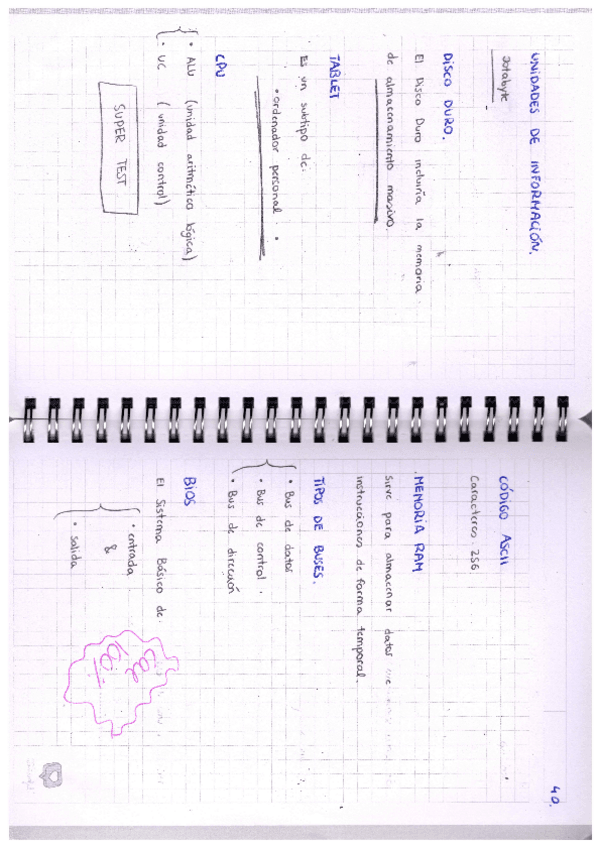 UNIDADES DE INFORMACIÓN.
Jotabyte
DISCO DURO.
El Disco Duro incluiría la memoria
de almacenamiento masivo.
TABLET
Es un subtipo de:
• ordenador personal.
CPU
• ALU (unidad aritmético lógica)
• UC (unidad control)
SUPER TEST
40.
CÓDIGO ASCII
Caracteres 256
MEMORIA RAM
Sirve para almacenar datos e
instrucciones de forma temporal.
TIPOS DE BUSES.
• Bus de datos
• Bus de control.
• Bus de dirección
BIOS
El Sistema Básico de:
• entrada
&
• salida